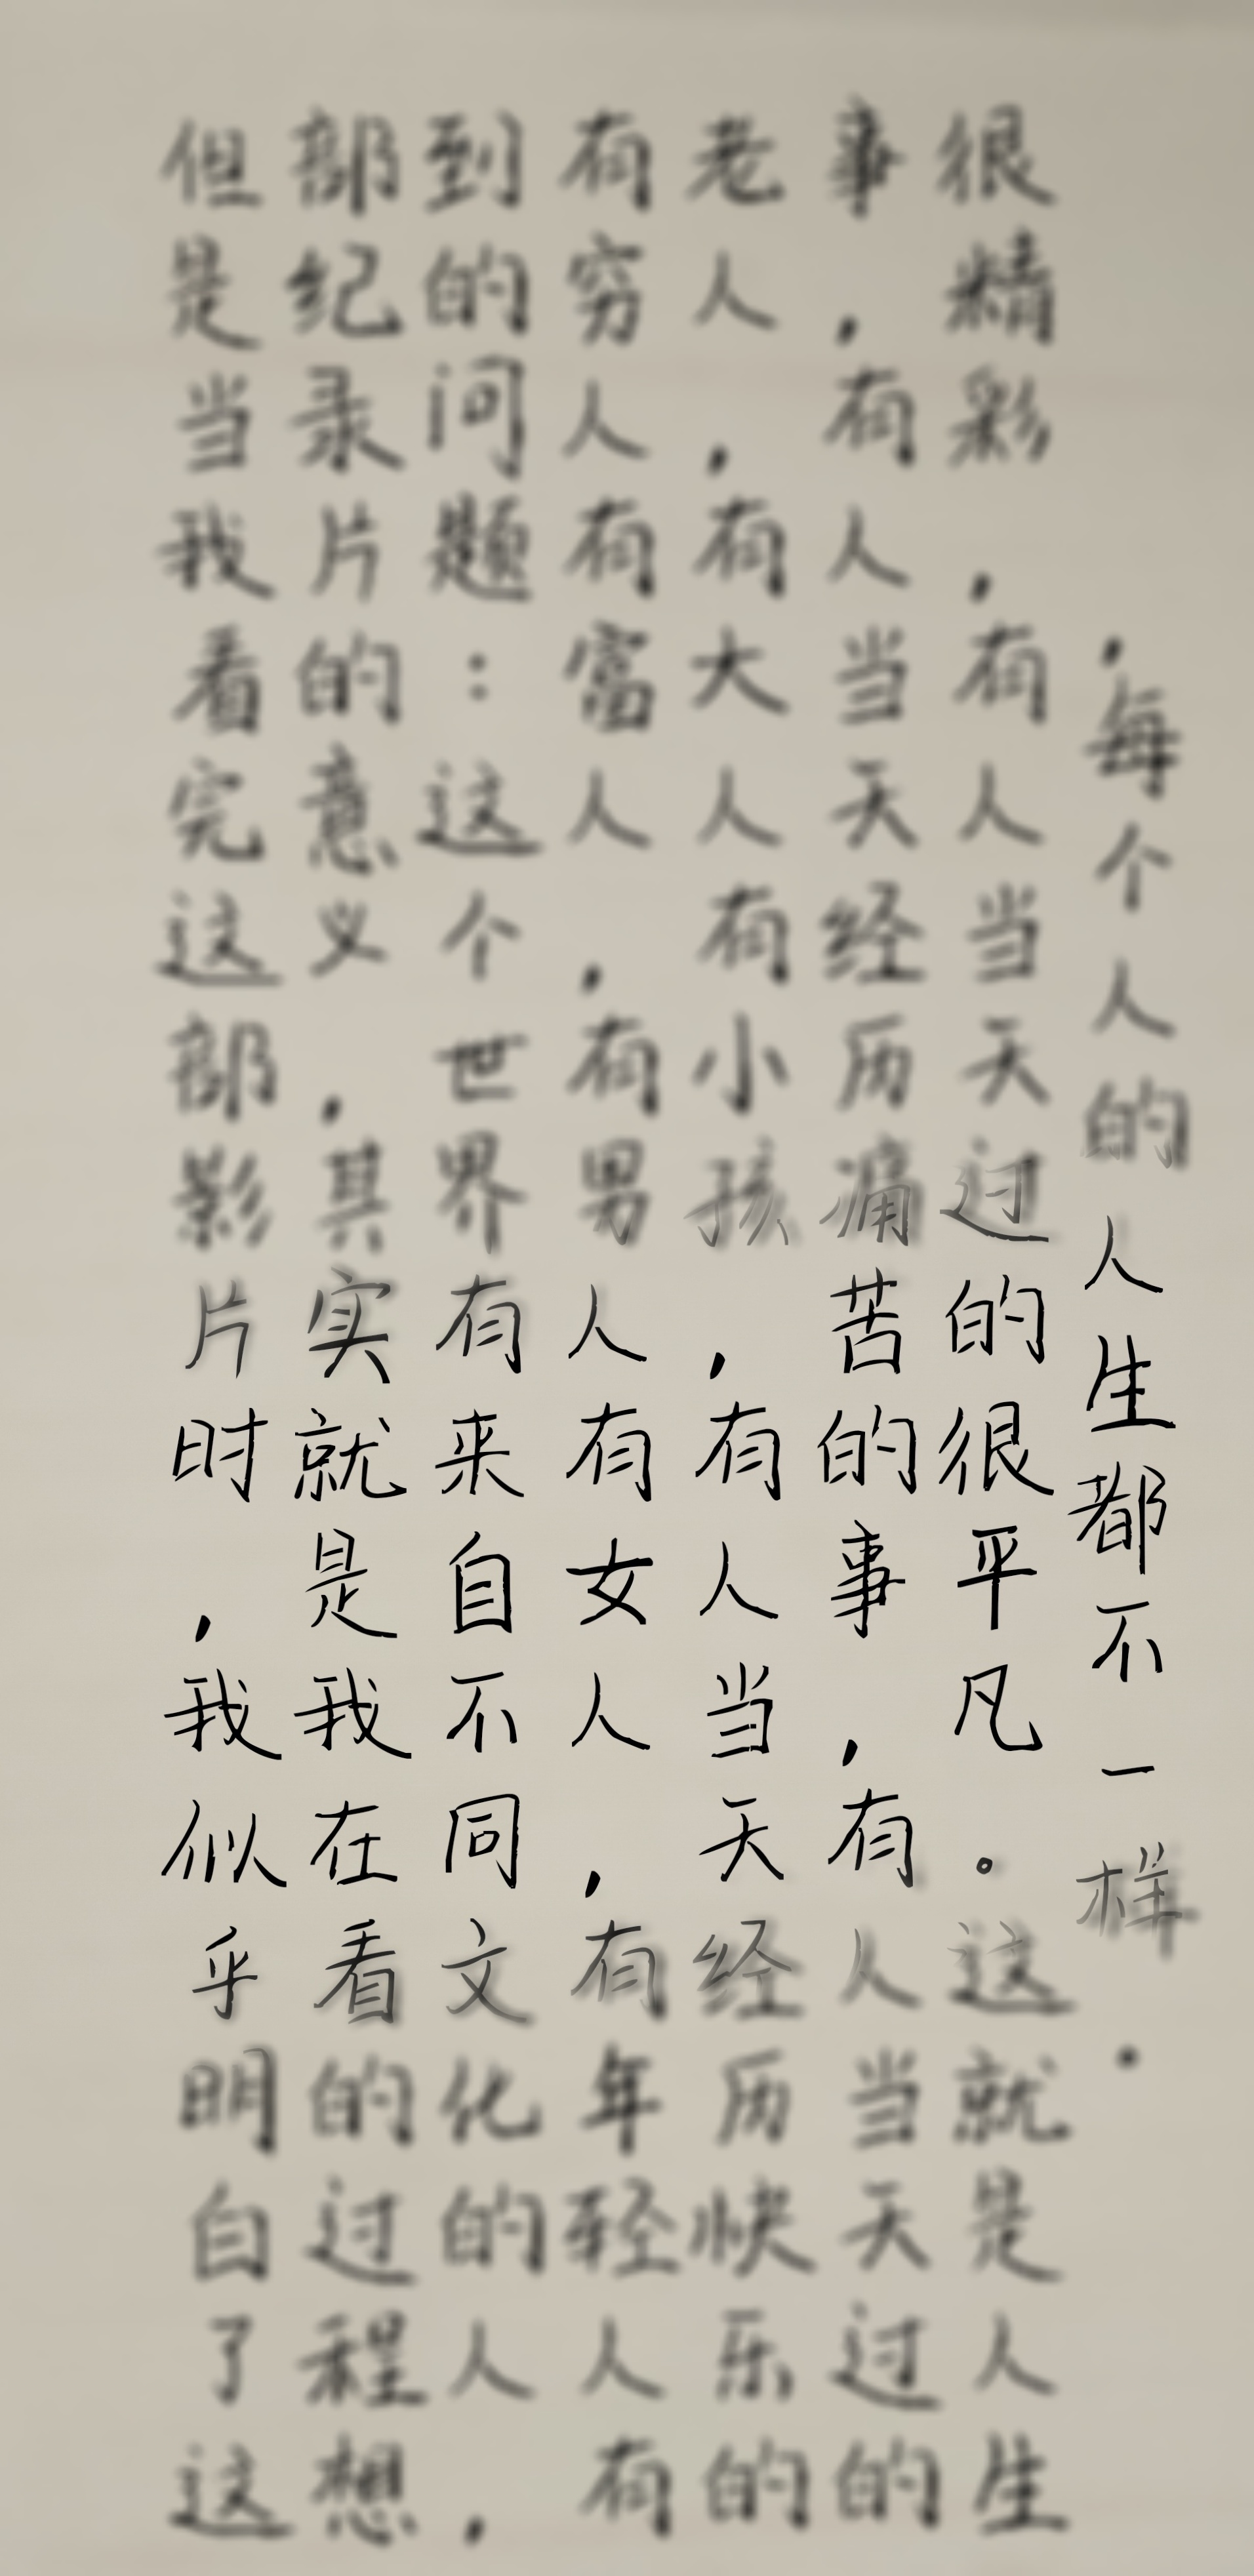 但是当我看完这部影片时，我似乎明白了这
部纪录片的意义，其实就是我在看的过程想
到的问题：这个世界有来自不同文化的人，
有穷人有富人，有男人有女人，有年轻人有
老人，有大人有小孩，有人当天经历快乐的
事，有人当天经历痛苦的事，有人当天过的
很精彩，有人当天过的很平凡。这就是人生
，每个人的人生都不一样.